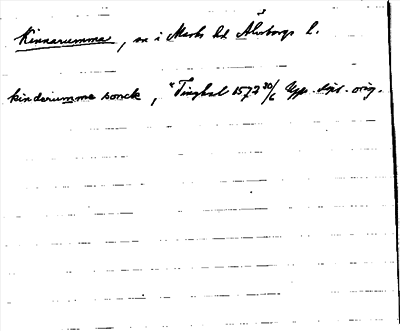 Kinnarumma, sn i Marks hd Älvsborgs l.
kinderumma sonck, "Tinghal 1572 30/6 Upps. dpl. orig.